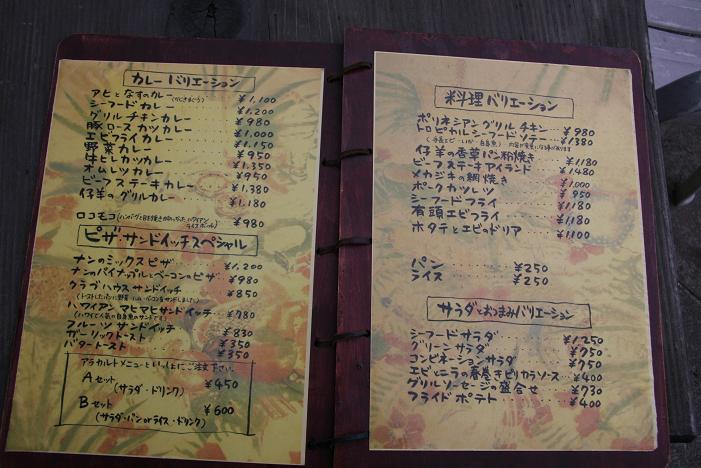 カレーバリエーション
アヒとなすのカレー ¥1,100
シーフードカレー ¥1,200
グリルチキンカレー ¥980
豚ロースカツカレー ¥1,000
エビフライカレー ¥1,150
野菜カレー ¥950
牛ヒレカツカレー ¥1,350
オムレツカレー ¥950
ビーフステーキカレー ¥1,380
仔羊のグリルカレー ¥1,180
ロコモコ ¥980
ピザ・サンドイッチスペシャル
ナンのミックスピザ ¥1,200
ナンのパイナップルとベーコンのピザ ¥980
クラブハウスサンドイッチ ¥850
(トーストしたパンに野菜・ハム・ベーコンをサンドしました)
ハワイアンマヒマヒサンドイッチ ¥980
(ハワイで人気の白身魚のサンドです)
フルーツサンドイッチ ¥830
ガーリックトースト ¥350
バタートースト ¥350
アラカルトメニューといっしょにご注文下さい。
Aセット ¥450
(サラダ・ドリンク)
Bセット ¥600
(サラダ・パンorライス・ドリンク)
料理バリエーション
ポリネシアングリルチキン ¥980
トロピカルシーフードソテー ¥1380
仔羊の香草パン粉焼き ¥1180
ビーフステーキアイランド ¥1480
メカジキの網焼き ¥1,000
ポークカツレツ ¥950
シーフードフライ ¥1,180
有頭エビフライ ¥1,180
ホタテとエビのドリア ¥1,100
パン ¥250
ライス ¥250
サラダとおつまみバリエーション
シーフードサラダ ¥1,250
グリーンサラダ ¥750
コンビネーションサラダ ¥750
エビとニラの春巻きピリカラソース ¥400
グリルソーセージの盛合せ ¥730
フライドポテト ¥400